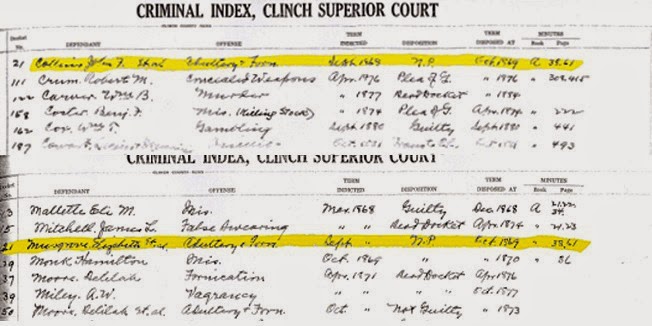 CRIMINAL INDEX, CLINCH SUPERIOR COURT
Docket No. DEFENDANT OFFENSE TERM INDICTED DISPOSITION TERM DISPOSED AT MINUTES Book Page
21 Collins John F. et al Adultery & Forn. Sept. 1868 N.P. Oct. 1869 A 38,61
111 Crum Robert M. Concealed Weapons Apr. 1876 Plea of G. " 1876 " 302,415
122 Carver Wm B. Murder " 1877 Dead Docket " 1884
168 Coster Benj. F. Mis. (Killing Stock) " 1874 Plea of G. Apr. 1874 " 222
162 Cox, Wm Gambling Sept. 1880 Guilty Sept. 1880 " 441
187 Oct. " 493
CRIMINAL INDEX, CLINCH SUPERIOR COURT
No. DEFENDANT OFFENSE TERM INDICTED DISPOSITION TERM DISPOSED AT MINUTES Book Page
3 Mallette Eli M. Mis. Mar. 1868 Guilty Dec. 1868 A 34
15 Mitchell, James L. False Swearing " " Dead Docket Apr. 1874 " 21,23
21 Musgrove Elizabeth et al. Adultery & Forn. Sept. " N.P. Oct. 1869 " 38,61
29 Monk Hamilton Mis. Oct. 1869 " 1870 " 36
37 Moore Delilah Fornication Apr. 1871 Dead Docket Apr. 1876
39 Miley, A.W. Vagrancy " " Oct. 1877
50 Moore, Delilah et. al. Adultery & Forn. Oct. " Not Guilty " 1873